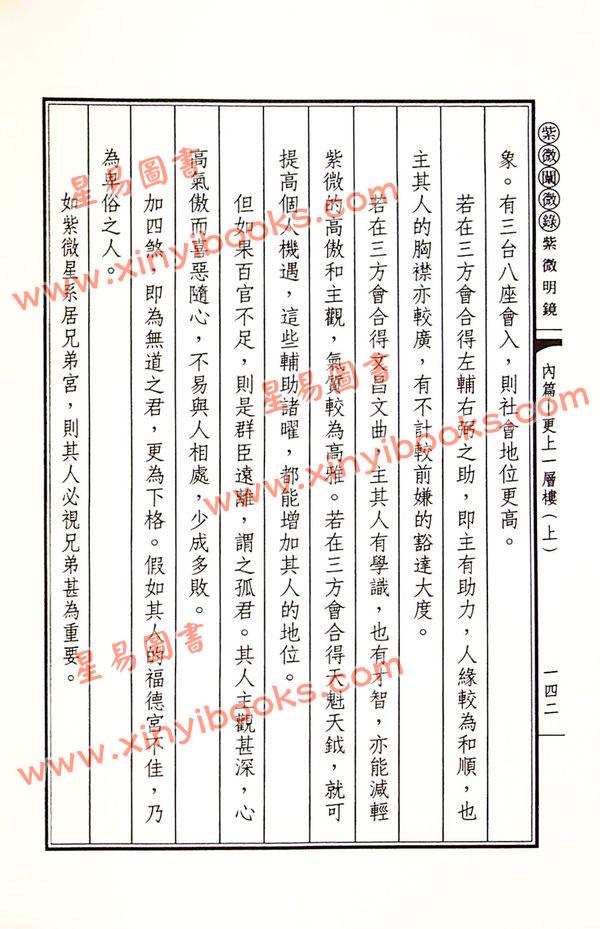 紫微闡微錄 紫微明鏡 內篇 更上一層樓(上) 一四二
象。有三台八座會入，則社會地位更高。
若在三方會合得左輔右弼之助，即主有助力，人緣較為和順，也
主其人的胸襟亦較廣，有不計較前嫌的豁達大度。
若在三方會合得文昌文曲，主其人有學識，也有才智，亦能減輕
紫微的高傲和主觀，氣質較為高雅。若在三方會合得天魁天鉞，就可
提高個人機遇，這些輔助諸曜，都能增加其人的地位。
但如果百官不足，則是群臣遠離，謂之孤君。其人主觀甚深，心
高氣傲而喜惡隨心，不易與人相處，少成多敗。
加四煞，即為無道之君，更為下格。假如其人的福德宮不佳，乃
為卑俗之人。
如紫微星系居兄弟宮，則其人必視兄弟甚為重要。
星易圖書
www.xinyibooks.com
星易圖書
www.xinyibooks.com
星易圖書
www.xinyibooks.com